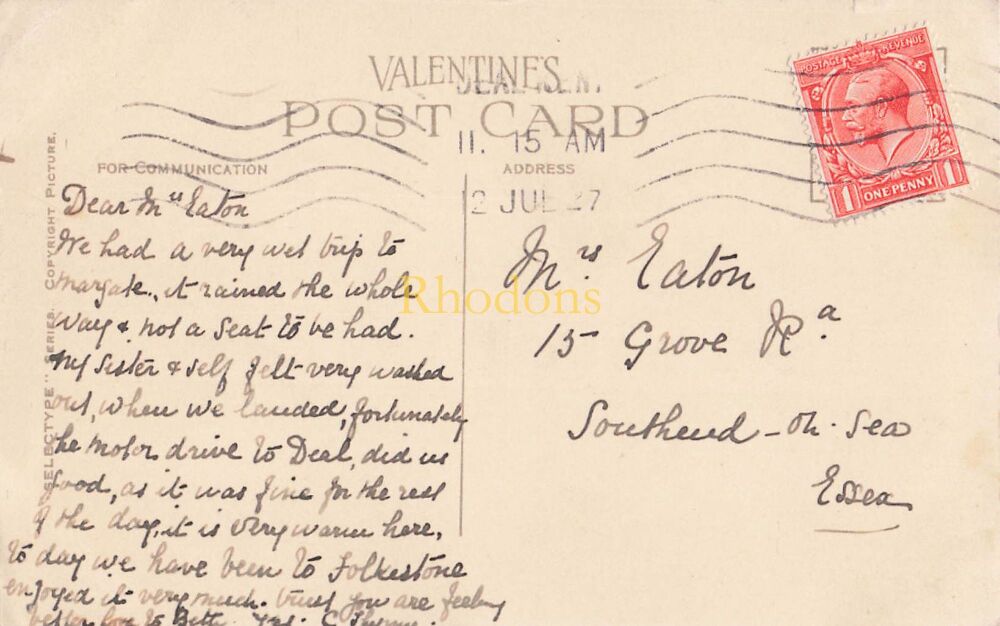 VALENTINES
POST CARD
DEAL KENT
11. 15 AM
2 JUL 27
FOR COMMUNICATION
ADDRESS
POSTAGE REVENUE
1 ONE PENNY 1
"SELECTYPE" SERIES. COPYRIGHT PICTURE.
Dear Mrs Eaton
We had a very wet trip to
Margate., it rained the whole
Way & not a Seat to be had.
My Sister & self felt very washed
out, when we landed, fortunately
the motor drive to Deal, did us
Good, as it was fine for the rest
of the day, it is very warm here,
to day we have been to Folkestone
enjoyed it very much. trust you are feeling
better love to Betty. Yrs. C
Mrs. Eaton
15 Grove Rd
Southend-on-Sea
Essex
Rhodons